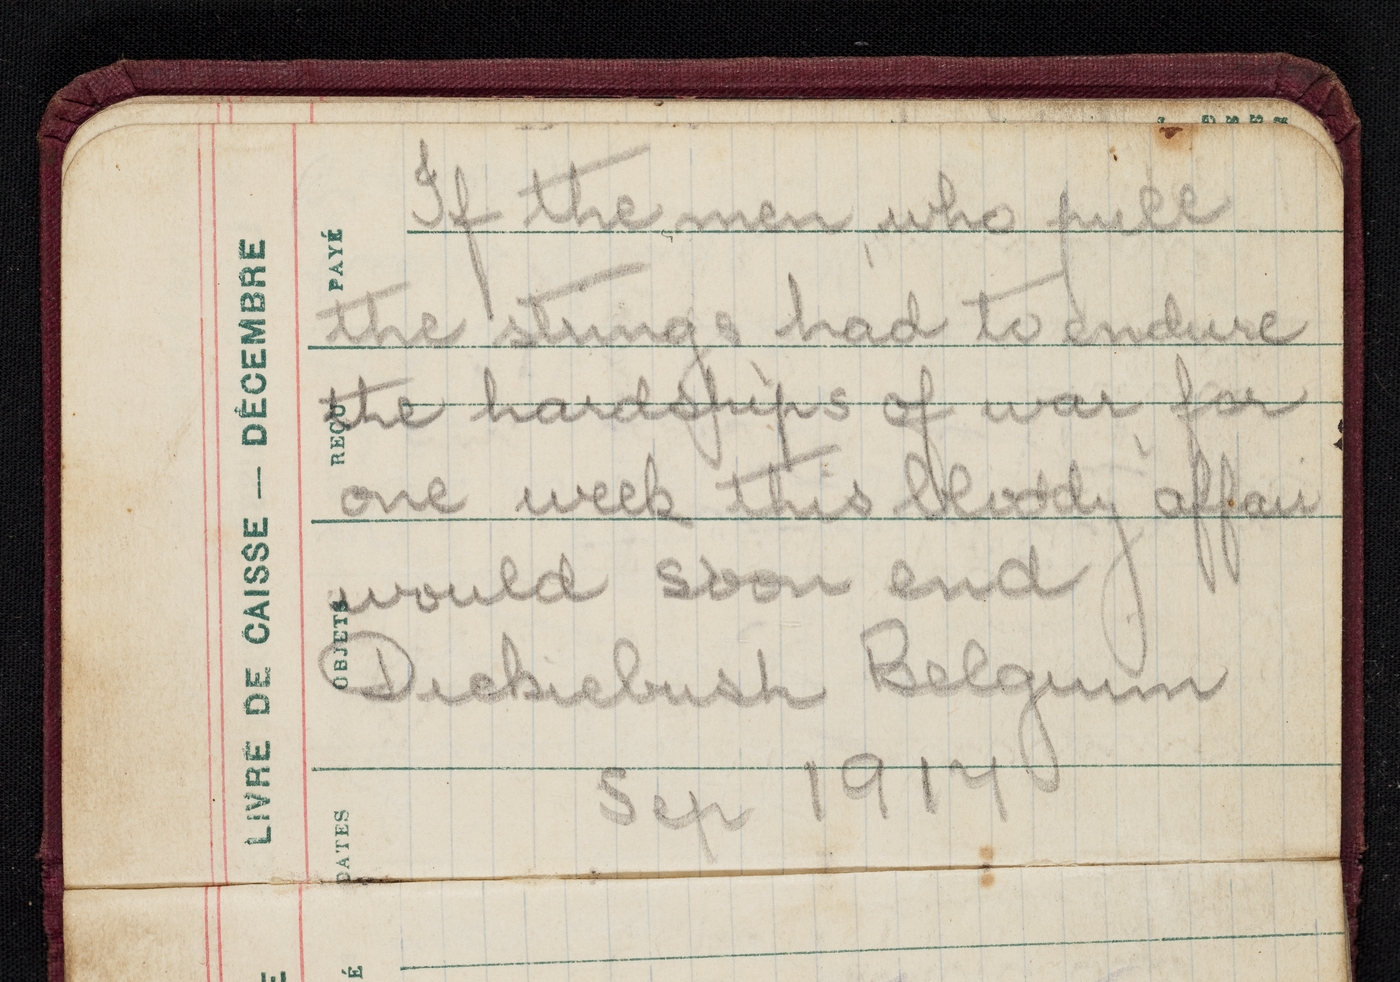 If the men who pull
the strings had to endure
the hardships of war for
one week this bloody affair
would soon end
Dickiebush Belgium
Sep 1917
LIVRE DE CAISSE — DÉCEMBRE
PAYÉ
REÇU
OBJETS
DATES